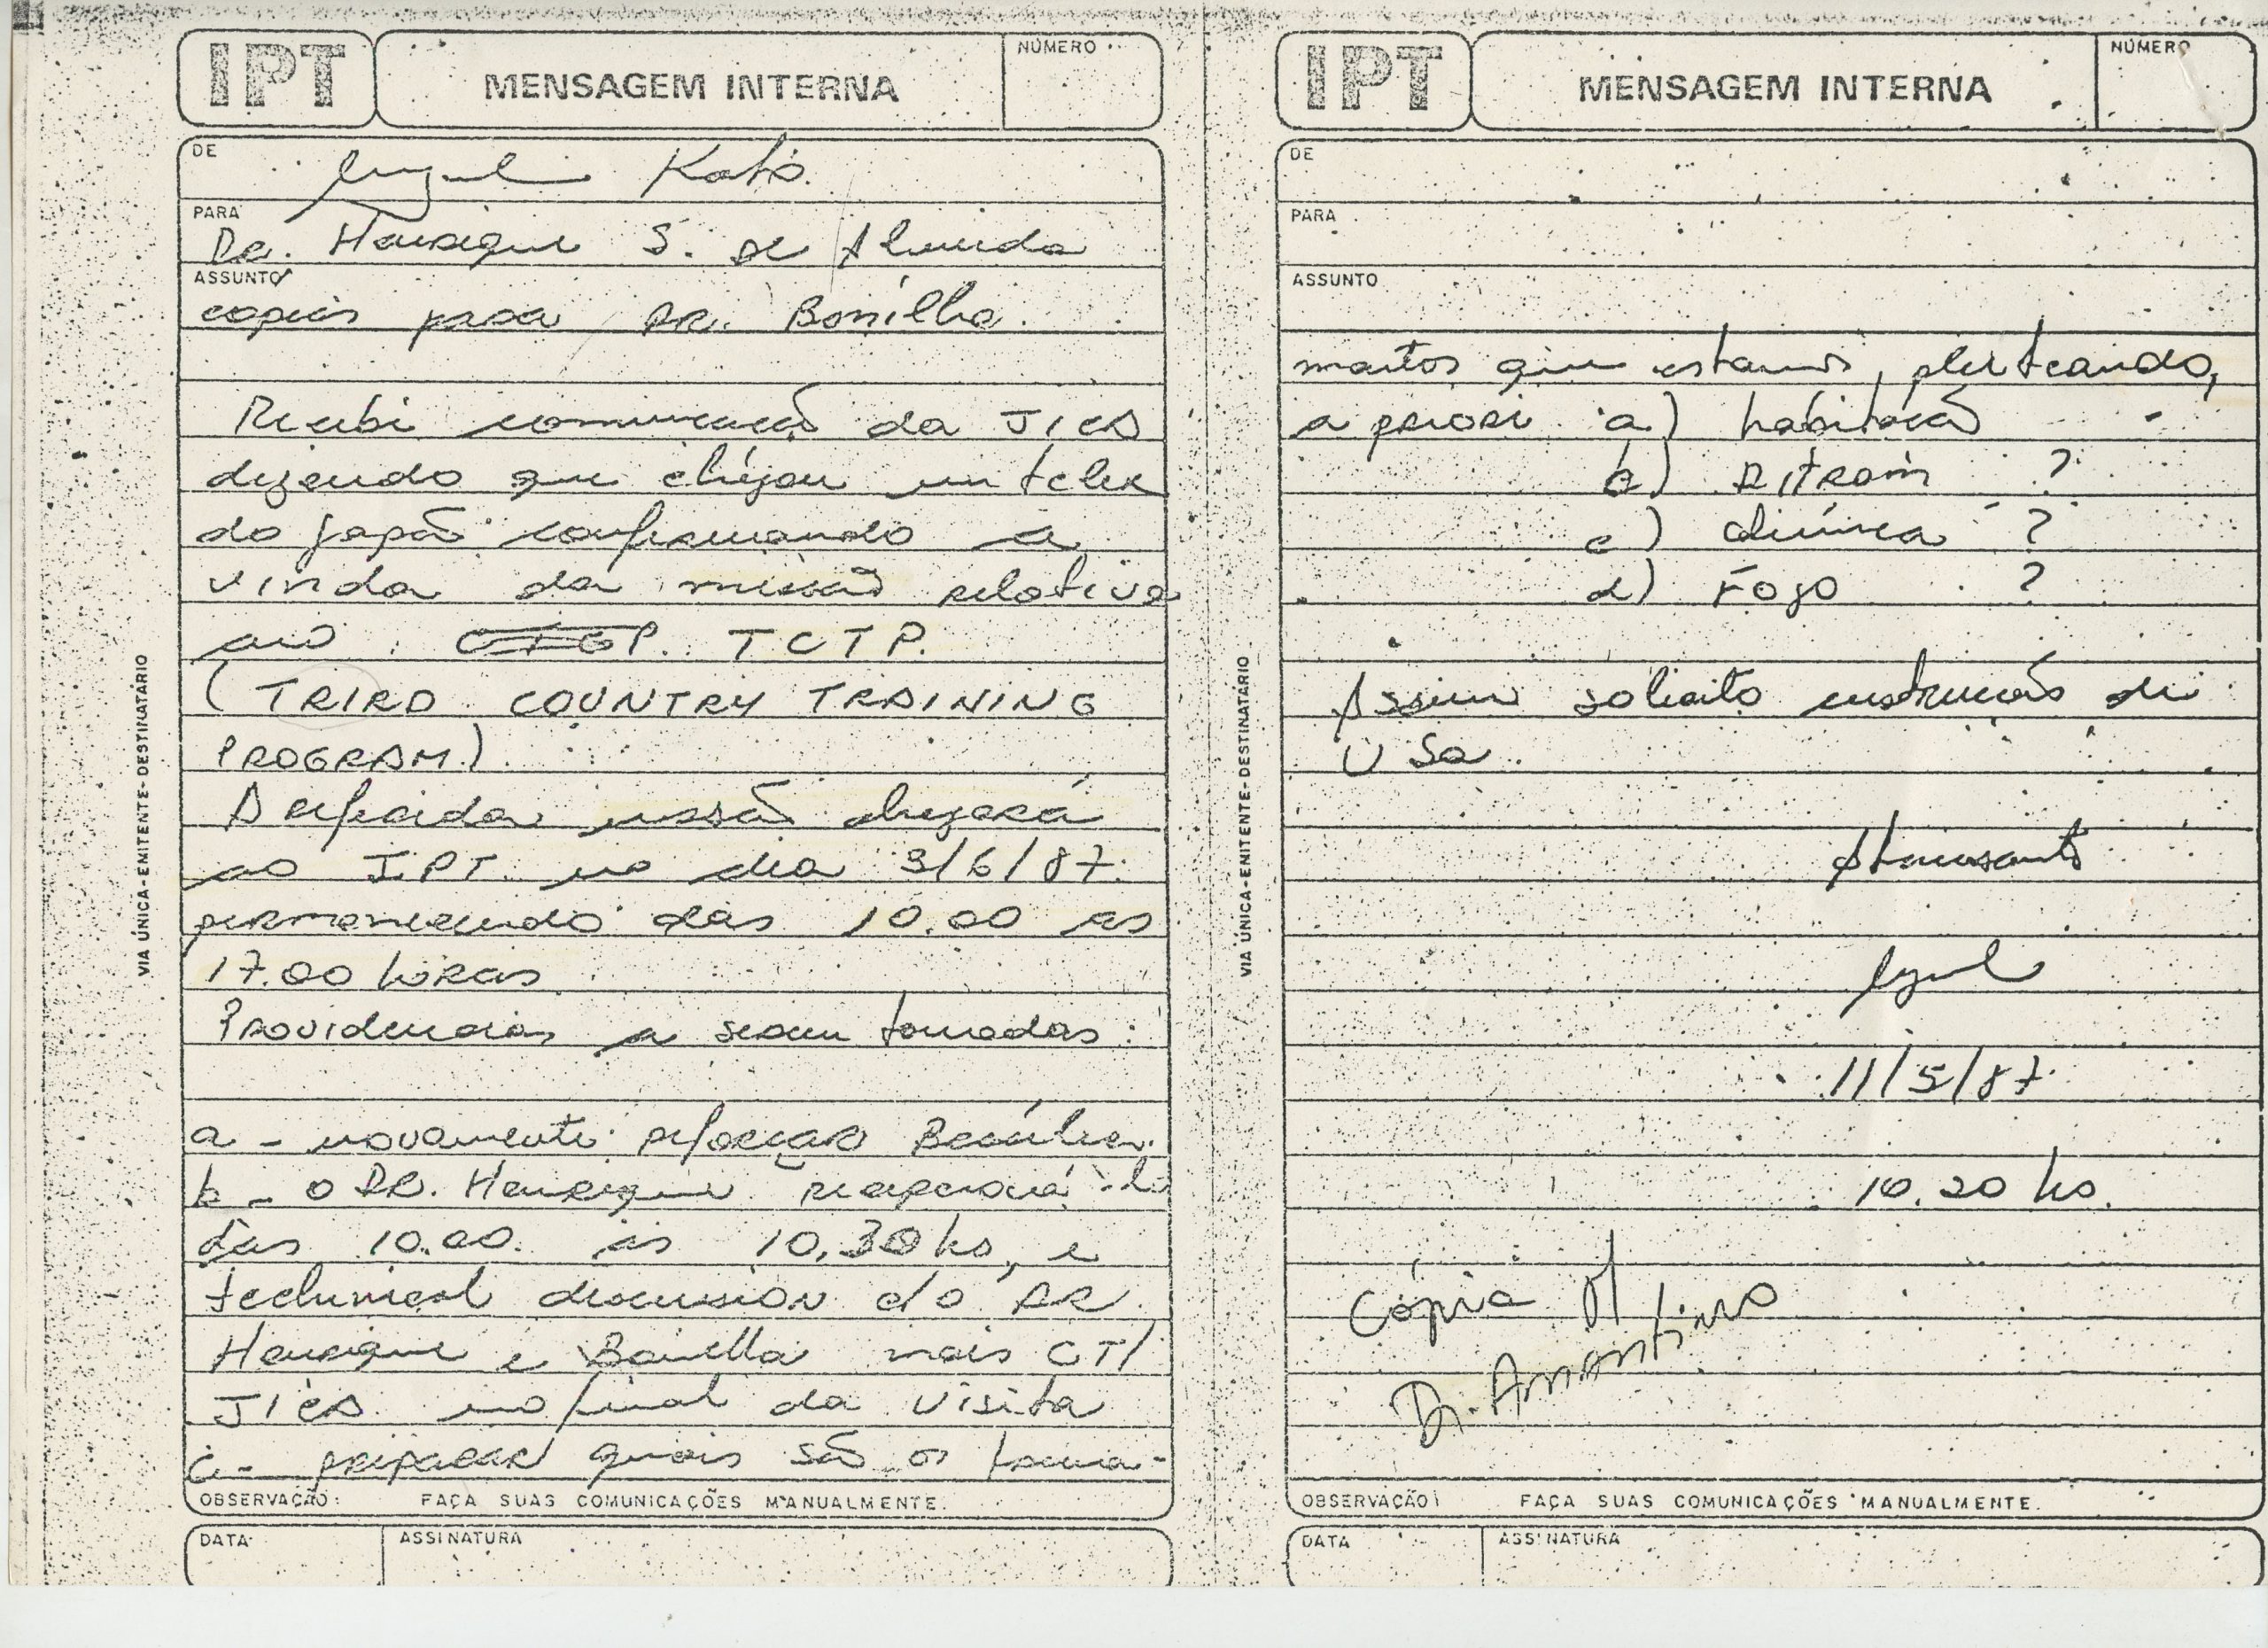 IPT
MENSAGEM INTERNA
NÚMERO
DE
Kato.
PARA
DR. Henrique S. de Almeida
ASSUNTO
copias para DR. Bonilha.
Recebi comunicação da JICA
dizendo que chegou um telex
do Japão confirmando a
vinda da missão relativa
ao TCTP.
(TRIRD COUNTRY TRAINING
PROGRAM)
A referida missão chegará
ao IPT no dia 3/6/87.
permanecendo das 10.00 as
17.00 horas
Providencias a serem tomadas:
a - novamente reforçar Brasília.
b - o DR. Henrique
das 10.00. às 10,30 hs, e
technical discussion c/o DR.
Henrique e Bonilha mais CTI
JICA no final da visita
c - preparar quais são os treina-
OBSERVAÇÃO: FAÇA SUAS COMUNICAÇÕES MANUALMENTE.
DATA
ASSINATURA
VIA ÚNICA-EMITENTE-DESTINATÁRIO
IPT
MENSAGEM INTERNA
NÚMERO
DE
PARA
ASSUNTO
mentos que estamos, pleiteando,
a priori a) habitação
b) DITRAM ?
c) Química ?
d) Fogo ?
Assim solicito instruções de
V Sa.
Atenciosamente
11/5/87.
10.20 hs.
Cópia p/
Dr. Amantino
OBSERVAÇÃO: FAÇA SUAS COMUNICAÇÕES MANUALMENTE.
DATA
ASSINATURA
VIA ÚNICA-EMITENTE-DESTINATÁRIO